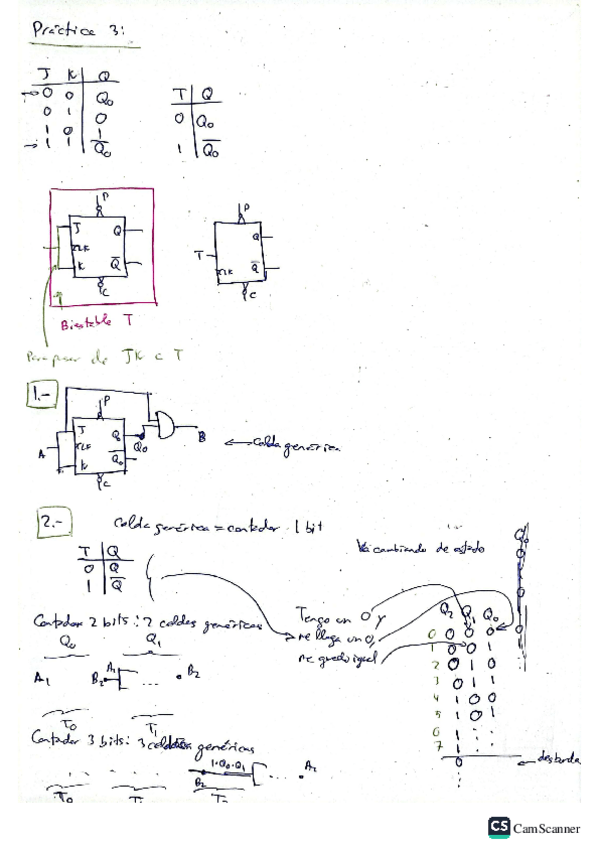 Práctica 3:
J K Q
0 0 Q₀
0 1 0
1 0 1
1 1 Q̅₀
T Q
0 Q₀
1 Q̅₀
P
J Q
CLK
K Q̅
C
P
Q
T
CLK Q̅
C
Biestable T
Para pasar de JK a T
1.-
P
J Q₀
A CLK Q₀ B
K Q̅₀
C
← Celda genérica
2.-
Celda genérica = contador 1 bit
T Q
0 Q
1 Q̅
Va cambiando de estado
Q₀
0
1
0
1
0
Contador 2 bits: 2 celdas genéricas
Q₀ Q₁
A₁ B₂ A₁ ... B₂
T₀ T₁
Tengo un 0 y
me llega un 0,
me quedo igual
Q₂ Q₁ Q₀
0 0 0 0
1 0 0 1
2 0 1 0
3 0 1 1
4 1 0 0
5 1 0 1
6 1 : :
7 : : :
0 ← desborda
Contador 3 bits: 3 celdas genéricas
1·Q₀·Q₁
B₂ ... A₂
T₀ T₁ T₂
CS CamScanner